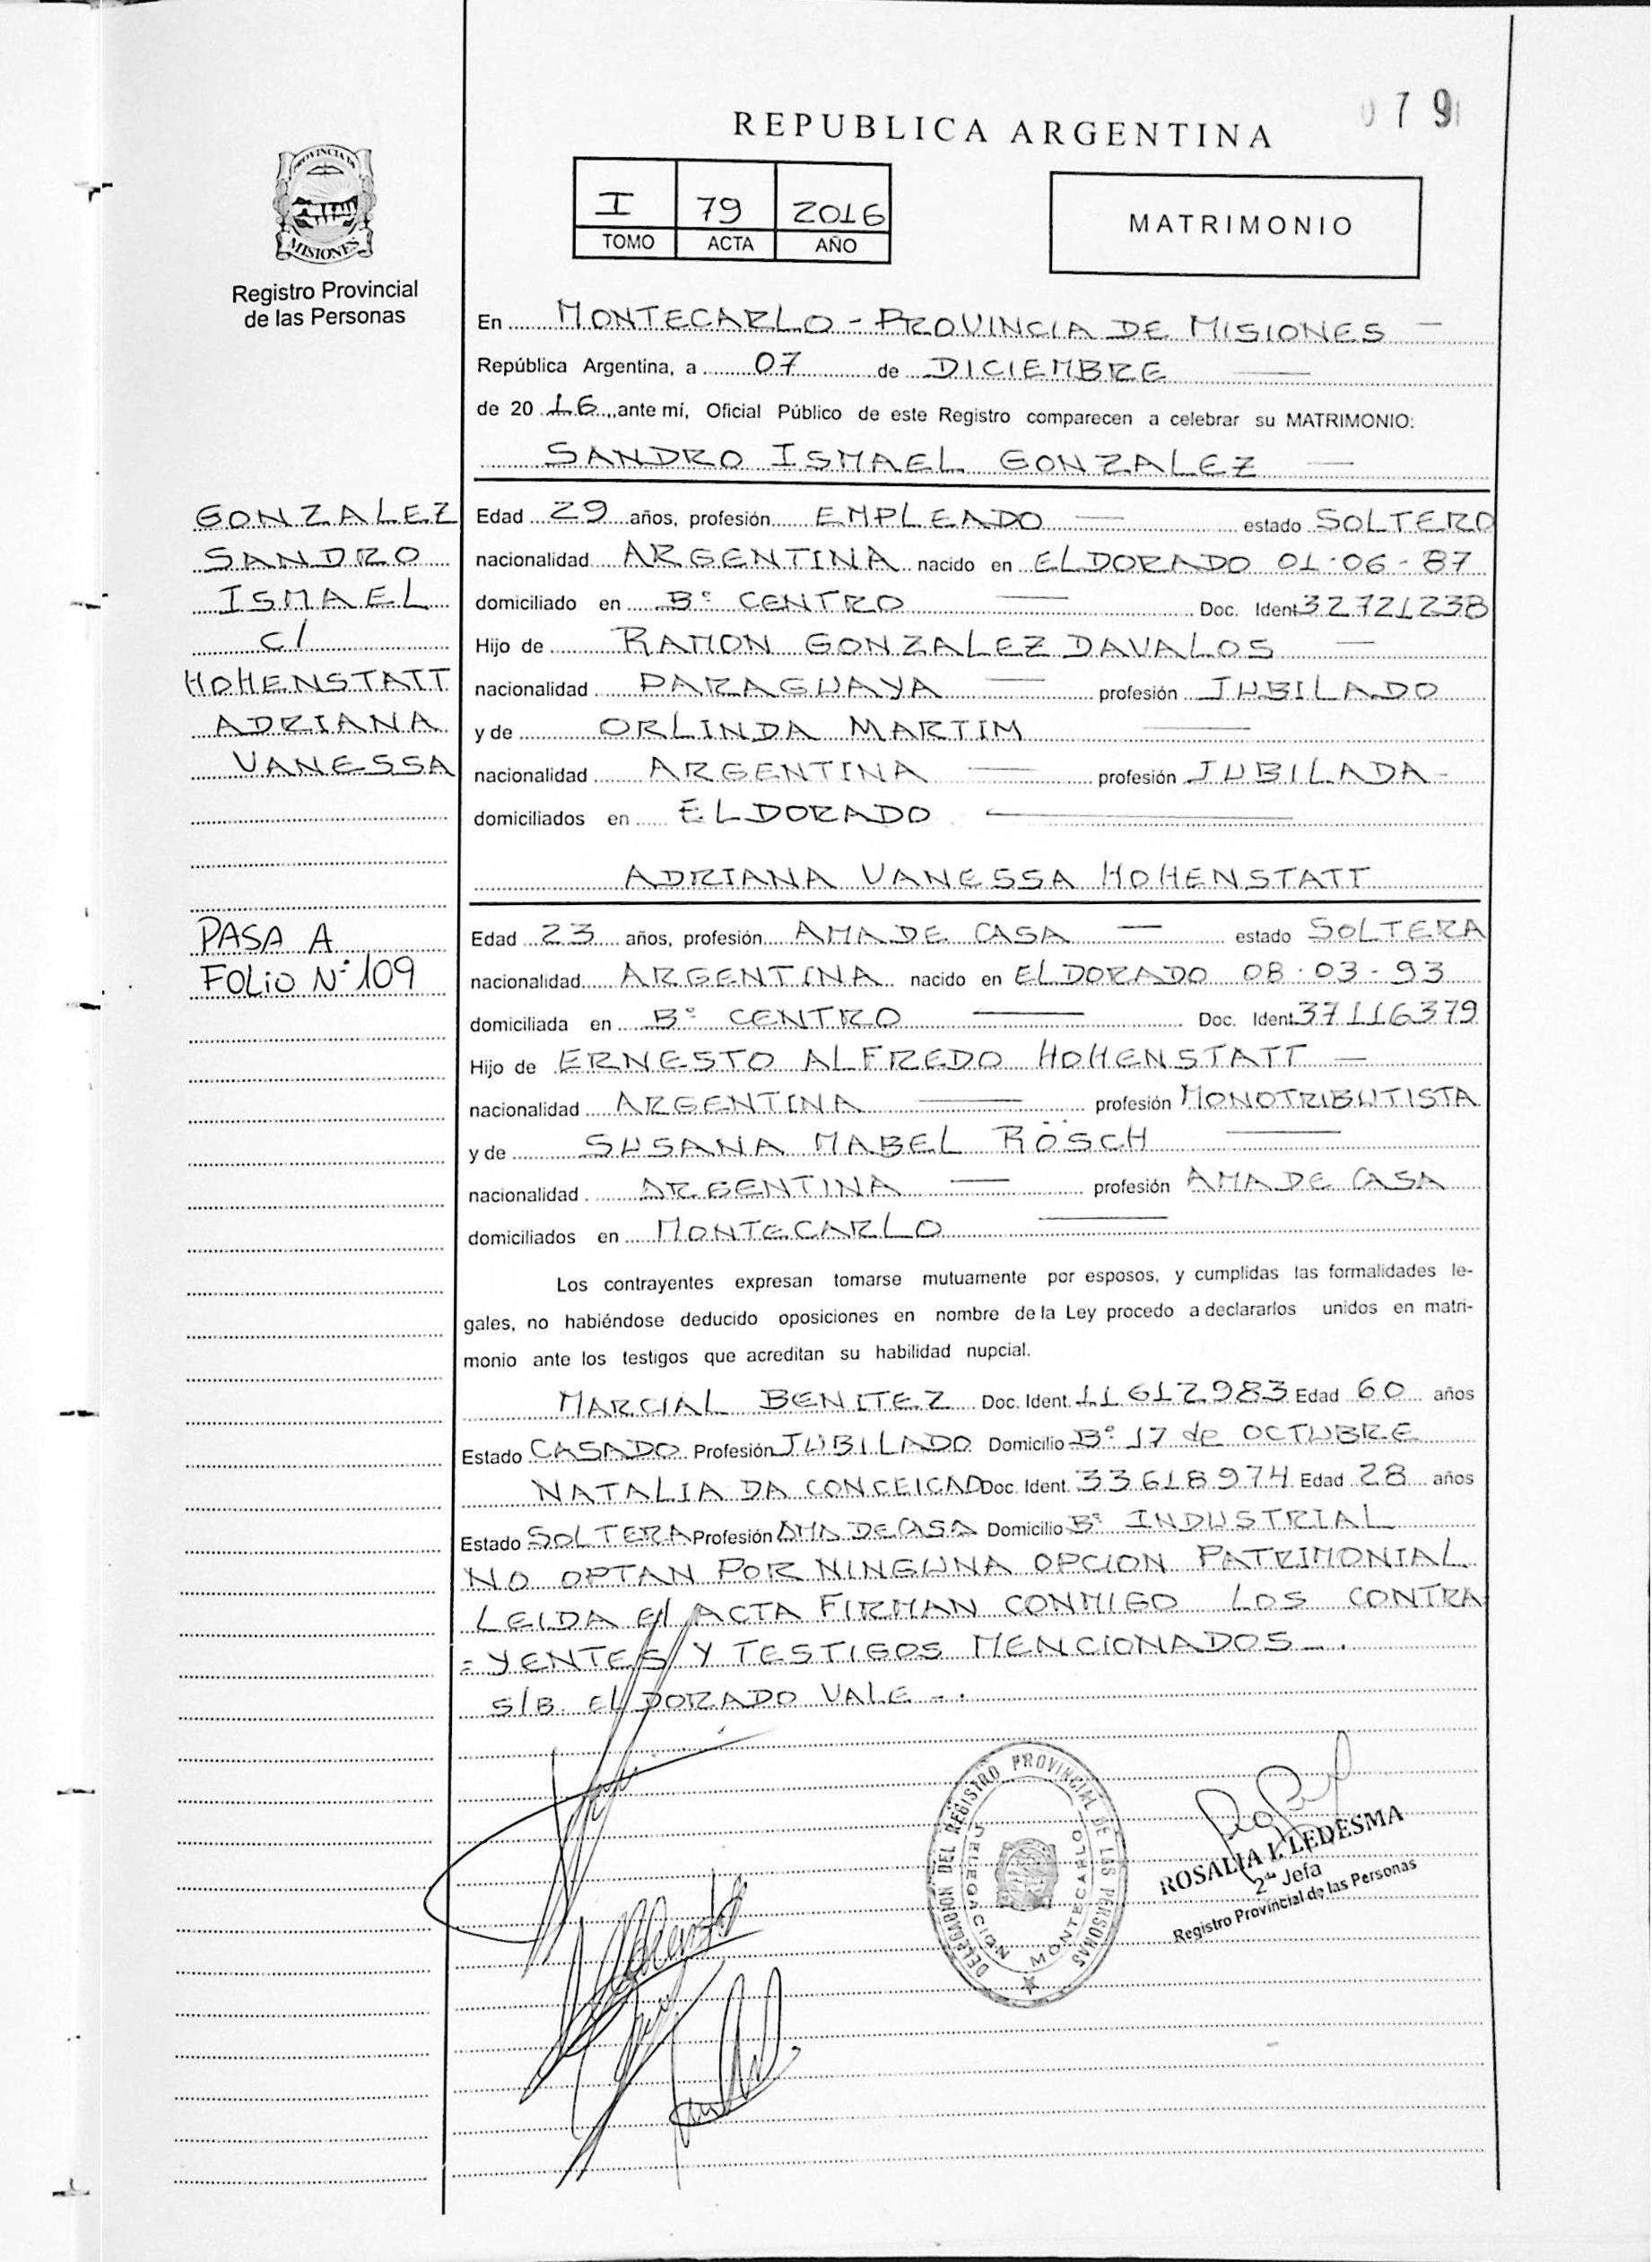 079
REPUBLICA ARGENTINA
PROVINCIA DE
MISIONES
Registro Provincial
de las Personas
I 79 2016
TOMO ACTA AÑO
MATRIMONIO
En MONTECARLO - PROVINCIA DE MISIONES
República Argentina, a 07 de DICIEMBRE
de 20 16 ante mí, Oficial Público de este Registro comparecen a celebrar su MATRIMONIO:
SANDRO ISMAEL GONZALEZ
GONZALEZ
SANDRO
ISMAEL
C/
HOHENSTATT
ADRIANA
VANESSA
PASA A
FOLIO Nº 109
Edad 29 años, profesión EMPLEADO estado SOLTERO
nacionalidad ARGENTINA nacido en ELDORADO 01-06-87
domiciliado en Bº CENTRO Doc. Ident 32721238
Hijo de RAMON GONZALEZ DAVALOS
nacionalidad PARAGUAYA profesión JUBILADO
y de ORLINDA MARTIM
nacionalidad ARGENTINA profesión JUBILADA
domiciliados en ELDORADO
ADRIANA VANESSA HOHENSTATT
Edad 23 años, profesión AMA DE CASA estado SOLTERA
nacionalidad ARGENTINA nacido en ELDORADO 08-03-93
domiciliada en Bº CENTRO Doc. Ident 37116379
Hijo de ERNESTO ALFREDO HOHENSTATT
nacionalidad ARGENTINA profesión MONOTRIBUTISTA
y de SUSANA MABEL RÖSCH
nacionalidad ARGENTINA profesión AMA DE CASA
domiciliados en MONTECARLO
Los contrayentes expresan tomarse mutuamente por esposos, y cumplidas las formalidades le-
gales, no habiéndose deducido oposiciones en nombre de la Ley procedo a declararlos unidos en matri-
monio ante los testigos que acreditan su habilidad nupcial.
MARCIAL BENITEZ Doc. Ident. 11612983 Edad 60 años
Estado CASADO Profesión JUBILADO Domicilio Bº 17 de OCTUBRE
NATALIA DA CONCEICAO Doc. Ident. 33618974 Edad 28 años
Estado SOLTERA Profesión AMA DE CASA Domicilio Bº INDUSTRIAL
NO OPTAN POR NINGUNA OPCION PATRIMONIAL
LEIDA El ACTA FIRMAN CONMIGO LOS CONTRA
= YENTES Y TESTIGOS MENCIONADOS -.
S/B. El DORADO VALE -.
DELEGACION DEL REGISTRO PROVINCIAL DE LAS PERSONAS
DELEGACION MONTECARLO
ROSALIA I. LEDESMA
2da Jefa
Registro Provincial de las Personas